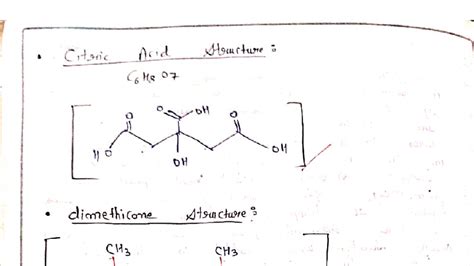 • Citric Acid Structure :
C6H8O7
O
OH
O
O
HO
OH
OH
• dimethicone Structure :
CH3 CH3